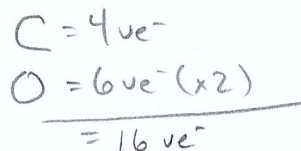 C = 4 ve⁻
O = 6 ve⁻ (x2)
= 16 ve⁻